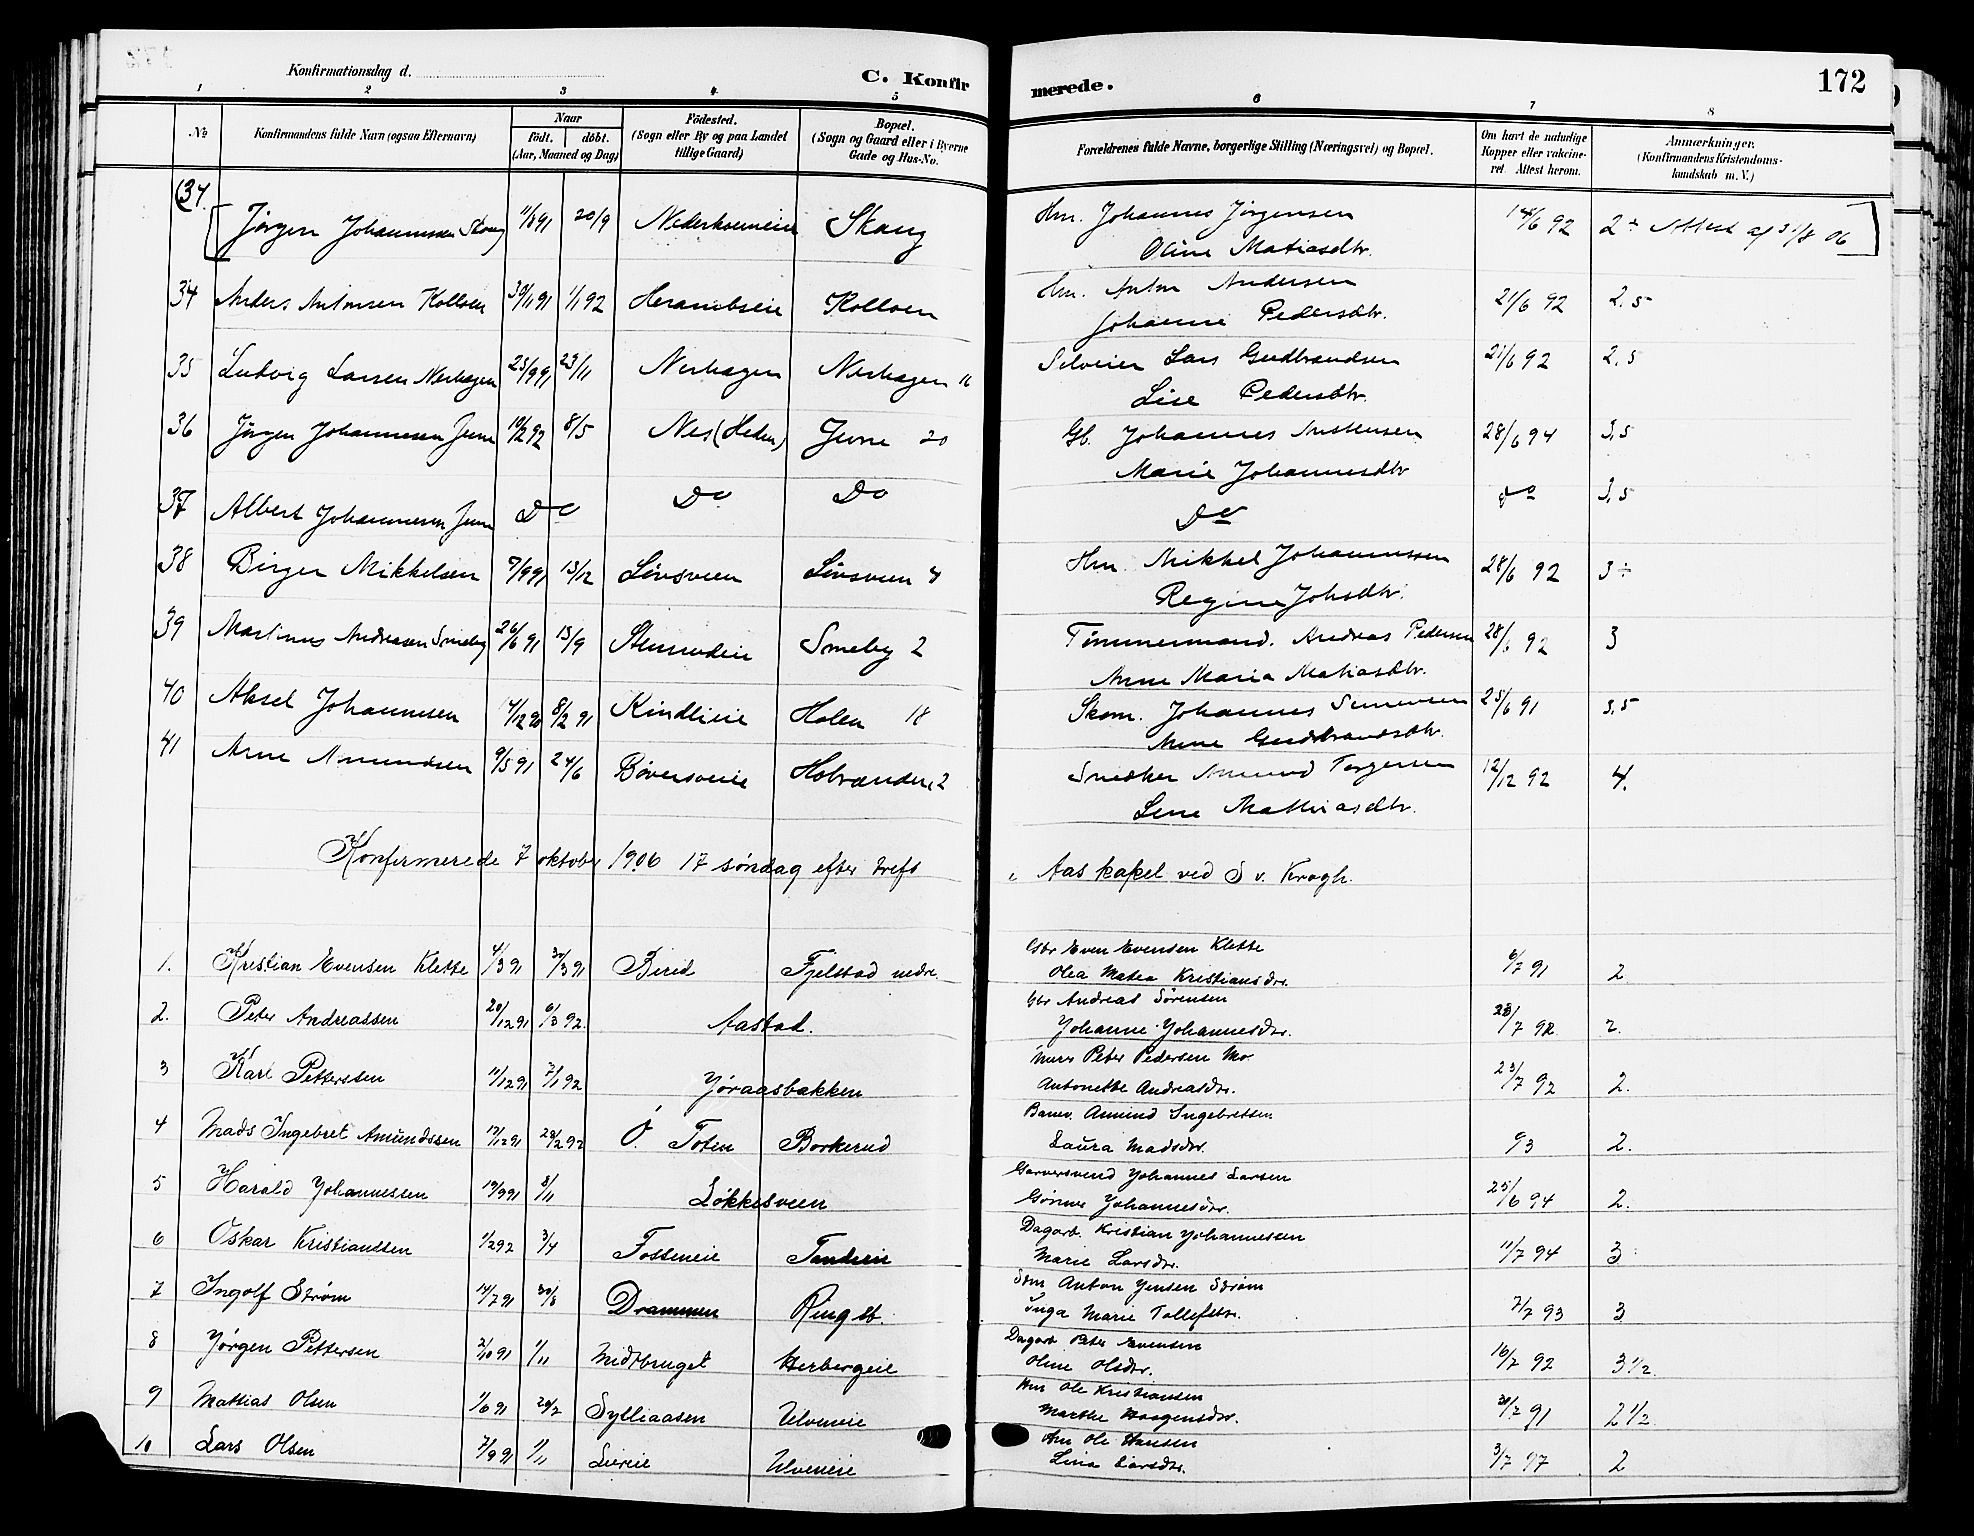 Konfirmationsdag d.
C. Konfirmerede.
172
1 2 3 4 5 6 7 8
№ Konfirmandens fulde Navn (ogsaa Efternavn) Naar født. døbt. (Aar, Maaned og Dag) Fødested. (Sogn eller By og paa Landet tillige Gaard) Bopæl. (Sogn og Gaard eller i Byerne Gade og Hus-No. Forældrenes fulde Navne, borgerlige Stilling (Næringsvei) og Bopæl. Om havt de naturlige Kopper eller vakcineret. Attest herom. Anmærkninger. (Konfirmandens Kristendomskundskab m. V.)
Jørgen Johannessen Skaug 11/8 91 20/9 Skaug Hm. Johannes Jørgensen 14/6 92 2÷ Attest af 31/8 06
Oline Matiasdtr.
34 Anders Antonsen Kolloen 30/11 91 1/1 92 Kolloen Hm. Anton Andersen 21/6 92 2.5
Johanne Pedersdtr.
35 Ludvig Larsen Nerhagen 25/9 91 29/11 Nerhagen Nerhagen 11 Selveier Lars Gudbrandsen 21/6 92 2,5
Lise Pedersdtr.
36 Jørgen Johannessen June 19/2 92 8/5 Nes (Hedm) June 20 Gb. Johannes 28/6 94 3,5
Marie Johannesdtr
37 Albert Johannessen June Do Do Do Do do 3,5
38 Birger Mikkelsen 7/9 91 13/12 Linsveen Linsveen 4 Hm. Mikkel Johannessen 28/6 92 3÷
Regine Johsdtr.
39 Martinus Andreasen Smeby 26/6 91 13/9 Smeby 2 Tømmermand. Andreas Pedersen 28/6 92 3
Anne Maria Matiasdtr.
40 Aksel Johannesen 14/12 90 8/2 91 Kindlieie Holen 18 Skom. Johannes Simensen 25/6 91 3,5
Anne Gudbrandsdtr.
41 Arne Amundsen 9/5 91 24/6 Bøversveie 2 Snedker Amund Torgersen 12/12 92 4.
Lene Mathiasdtr.
Konfirmerede 7 oktober 1906 17 søndag efter tref. i Aas kapel ved S v. Krogh.
1. Kristian Evensen Klette 4/3 91 30/3 91 Birid Fjelstad nedre Gbr Even Evensen Klette 6/7 91 2
Olea Matea Kristiansdr.
2. Peter Andreassen 20/12 91 6/3 92 Aastad. Gbr Andreas Sørensen 28/7 92 2.
Johanne Johannesdr.
3 Karl Pettersen 11/12 91 7/1 92 Jøraasbakken Murer Peter Pedersen Mo 23/7 92 2.
Antonette Andreasdr.
4 Mads Ingebret Amundssen 12/12 91 28/2 92 Ø. Toten Borkerud Banev. Amund Ingebretsen 93 2.
Laura Madsdr.
5 Harald Johannessen 19/9 91 8/11 Løkkesveen Garversvend Johannes Larsen 25/6 94 2.
Gønner Johannesdr.
6 Oskar Kristiansen 1/2 92 3/4 Fosseneie Tanderie Dagarb. Kristian Johannessen 11/7 94 3
Marie Larsdr.
7 Ingolf Strøm 14/7 91 30/8 Drammen Ringsb. Anton Jensen Strøm 7/7 93 3
Inga Marie Tollefsdr.
8 Jørgen Pettersen 2/10 91 1/11 Midtbruget Herbergeie Dagarb Peter Evensen 16/7 92 3½
Oline Olsdr.
9 Mathias Olsen 1/6 91 Sylliaasen Ulveneie Hm Ole Kristiansen 30/7 91 2½
Marthe Haagensdr.
10 Lars Olsen 7/9 91 1/11 Liereie Ulveneie Hm Ole Hansen 3/7 97 2
Lina Larsdr.